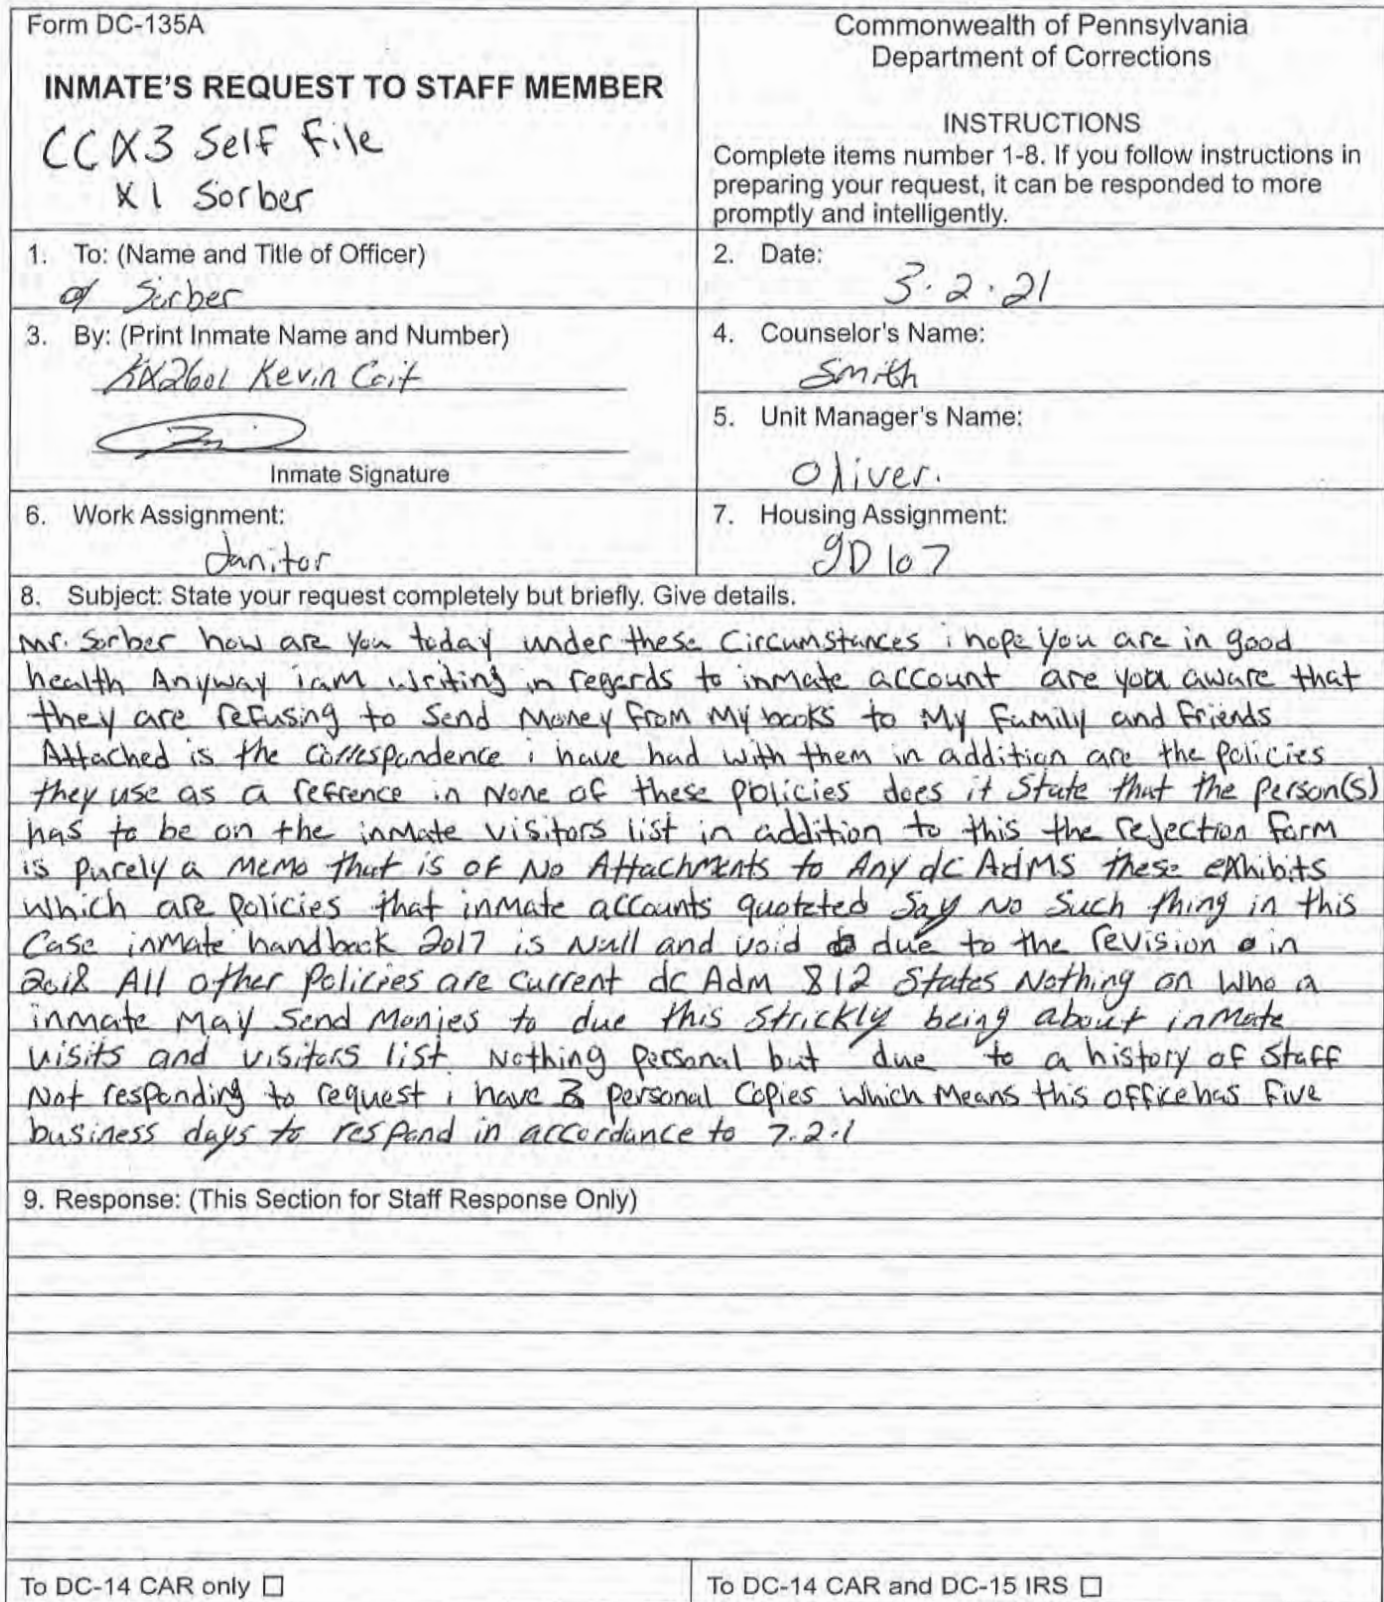 Form DC-135A
INMATE'S REQUEST TO STAFF MEMBER
CCX3 Self File
X1 Sorber
Commonwealth of Pennsylvania
Department of Corrections
INSTRUCTIONS
Complete items number 1-8. If you follow instructions in
preparing your request, it can be responded to more
promptly and intelligently.
1. To: (Name and Title of Officer)
Sorber
2. Date:
3.2.21
3. By: (Print Inmate Name and Number)
Kevin
Inmate Signature
4. Counselor's Name:
Smith
5. Unit Manager's Name:
Oliver.
6. Work Assignment:
Janitor
7. Housing Assignment:
9D107
8. Subject: State your request completely but briefly. Give details.
Mr. Sorber how are you today under these Circumstances i hope you are in good
health Anyway iam writing in regards to inmate account are you aware that
they are refusing to Send Money from My books to My Family and Friends
Attached is the correspondence i have had with them in addition are the policies
they use as a refrence in None of these policies does it State that the person(s)
has to be on the inmate visitors list in addition to this the rejection form
is purely a memo that is of No Attachments to Any dc Adms these exhibits
which are policies that inmate accounts quoteted Say No Such thing in this
Case inmate handbook 2017 is Null and void due to the revision in
2018 All other Policies are current dc Adm 812 States Nothing on Who a
inmate May Send Monies to due this Strickly being about inmate
visits and visitors list. Nothing personal but due to a history of Staff
Not responding to request i have 3 personal Copies which Means this office has Five
business days to respond in accordance to 7.2.1
9. Response: (This Section for Staff Response Only)
To DC-14 CAR only ☐
To DC-14 CAR and DC-15 IRS ☐